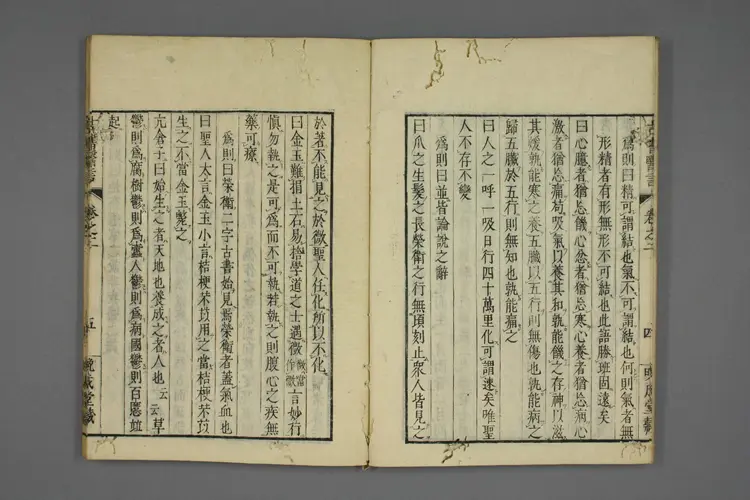 為則曰精可謂結也氣不可謂結也何則氣者無
形精者有形無形不可結也此語勝班固遠矣
曰心臆者猶忘饑心忿者猶忘寒心養者猶忘病心
激者猶忘痛苟吸氣以養其和孰能饑之存神以滋
其煖孰能寒之養五臟以五行則無傷也孰能病之
歸五臟於五行則無知也孰能痛之
曰人之一呼一吸日行四十萬里化可謂速矣唯聖
人不存不變
為則曰並皆論說之辭
曰爪之生髮之長榮衛之行無頃刻止衆人皆見之
四
於著不能見之於微聖人任化所以不化
曰金玉難捐土石易捨學道之士遇微言妙行
微當作微
慎勿執之是可為而不可執若執之則腹心之疾無
藥可療
為則曰榮衛二字古書始見焉榮衛者蓋氣血也
曰聖人大言金玉小言桔梗芣苢用之當桔梗芣苢
生之不當金玉斃之
亢倉子曰始生之者天地也養成之者人也云云草
鬱則為腐樹鬱則為蠹人鬱則為病國鬱則百慝竝
起
卷之二
五